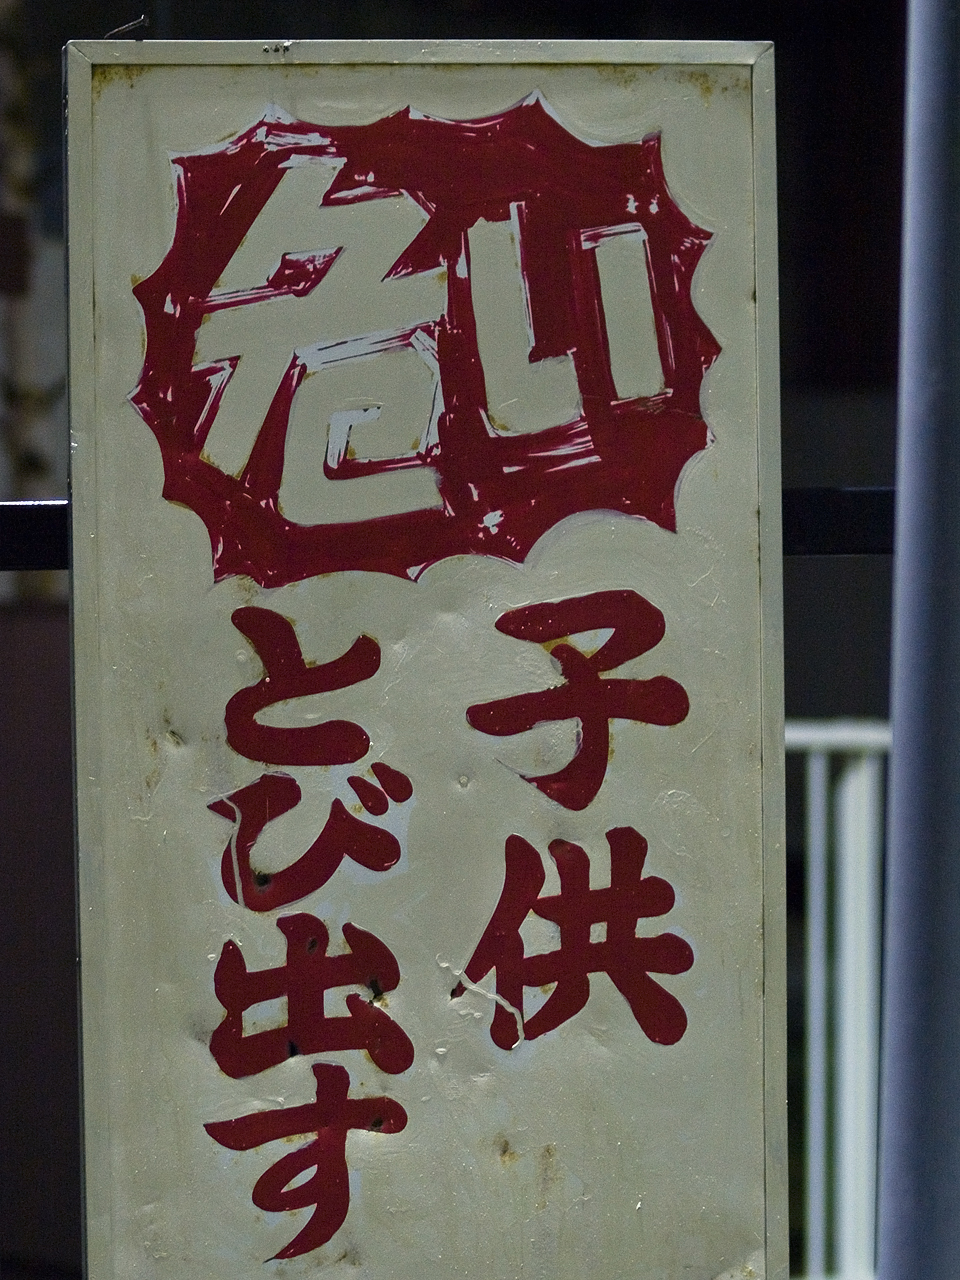 危い
子供
とび出す